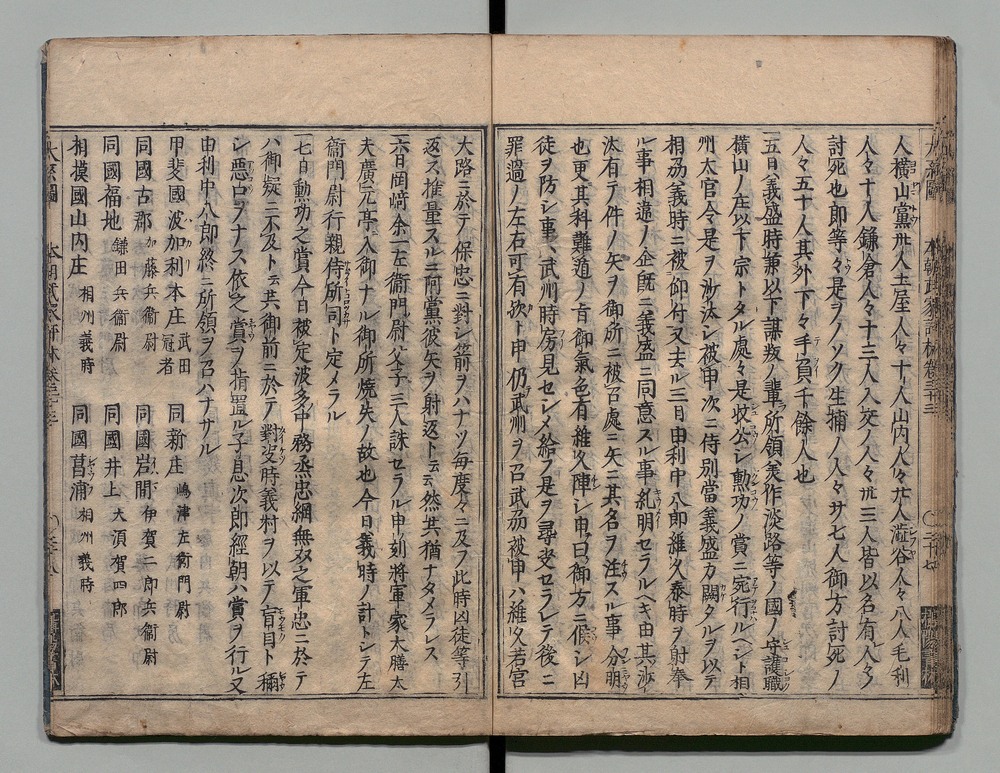 人横山黨卅人土屋人々十人山内人々廿人澁谷人々八人毛利
人々十人鎌倉人々十三人人々交ノ人々卅三人皆以名有人々
討死也郎等々是ヲノソク生捕ノ人々廿七人御方討死ノ
人々五十人其外下々手負千餘人也
五日義盛時兼以下謀叛ノ輩ノ所領美作淡路等ノ國ノ守護職
横山ノ庄以下宗トタル處々是收公シ勲功ノ賞ニ宛行ルヘシト相
州太官令是ヲ沙汰シ被申次ニ侍別當義盛カ闕タルヲ以テ
相刕義時ニ被仰付又去ル三日由利中八郎維久泰時ヲ射奉
ル事相違ノ企既ニ義盛ニ同意スル事糺明セラルヘキ由其沙
汰有テ件ノ矢ヲ御所ニ被召處ニ矢ニ其名ヲ注スル事分明
也更其科難遁ノ旨御氣色有維久陣シ申曰御方ニ候シ凶
徒ヲ防シ事武州時房見セシメ給フ是ヲ尋決セラレテ後ニ
罪過ノ左右可有歟ト申仍武州ヲ召武刕被申ハ維久若宮
大路ニ於テ保忠ニ對シ箭ヲハナツ毎度々ニ及フ此時凶徒等引
返ス推量スルニ阿黨彼矢ヲ射返ト云云然共猶ナタメラレス
六日岡﨑余一左衞門尉父子三人誅セラル申ノ刻將軍家大膳太
夫廣元亭入御ナル御所焼失ノ故也今日義時ノ計トシテ左
衞門尉行親侍所司ト定メラル
七日勲功之賞今日被定波多中務丞忠綱無双之軍忠ニ於テ
ハ御疑ニ不及ト云共御前ニ於テ對决時義村ヲ以テ盲目ト稱
シ悪口ヲナス依之賞ヲ指置ル子息次郎經朝ハ賞ヲ行ル又
由利中八郎終ニ所領ヲ召ハナサル
甲斐國波加利本庄 武田冠者 同新庄 嶋津左衞門尉
同國古郡 加藤兵衞尉 同國岩間 伊賀二郎兵衞尉
同國福地 鎌田兵衞尉 同國井上 大須賀四郎
相摸國山内庄 相州義時 同國菖蒲 相州義時